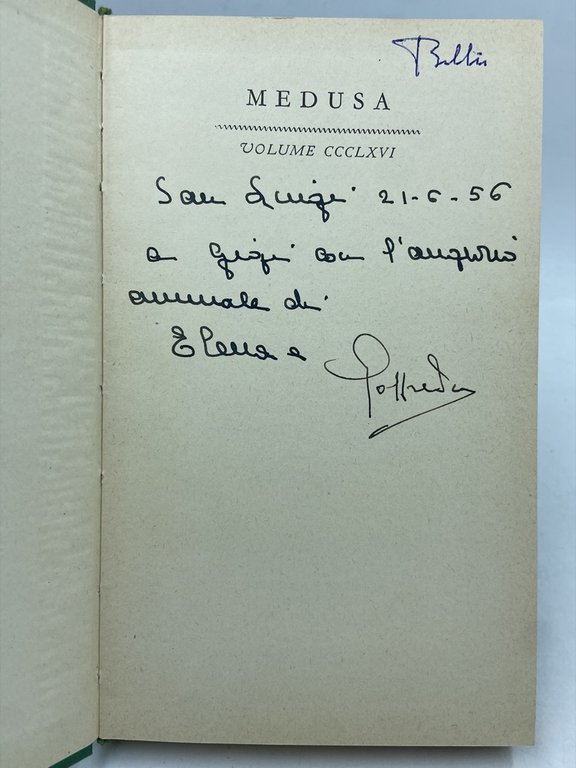 MEDUSA
VOLUME CCCLXVI
San Luigi 21-6-56
a Gigi con l'augurio
annuale di
Elena e Goffredo